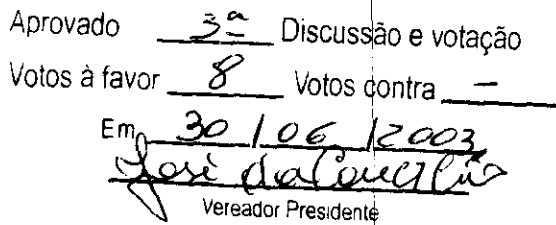 Aprovado 3ª Discussão e votação
Votos à favor 8 Votos contra -
Em 30 / 06 / 2003
José da
Vereador Presidente